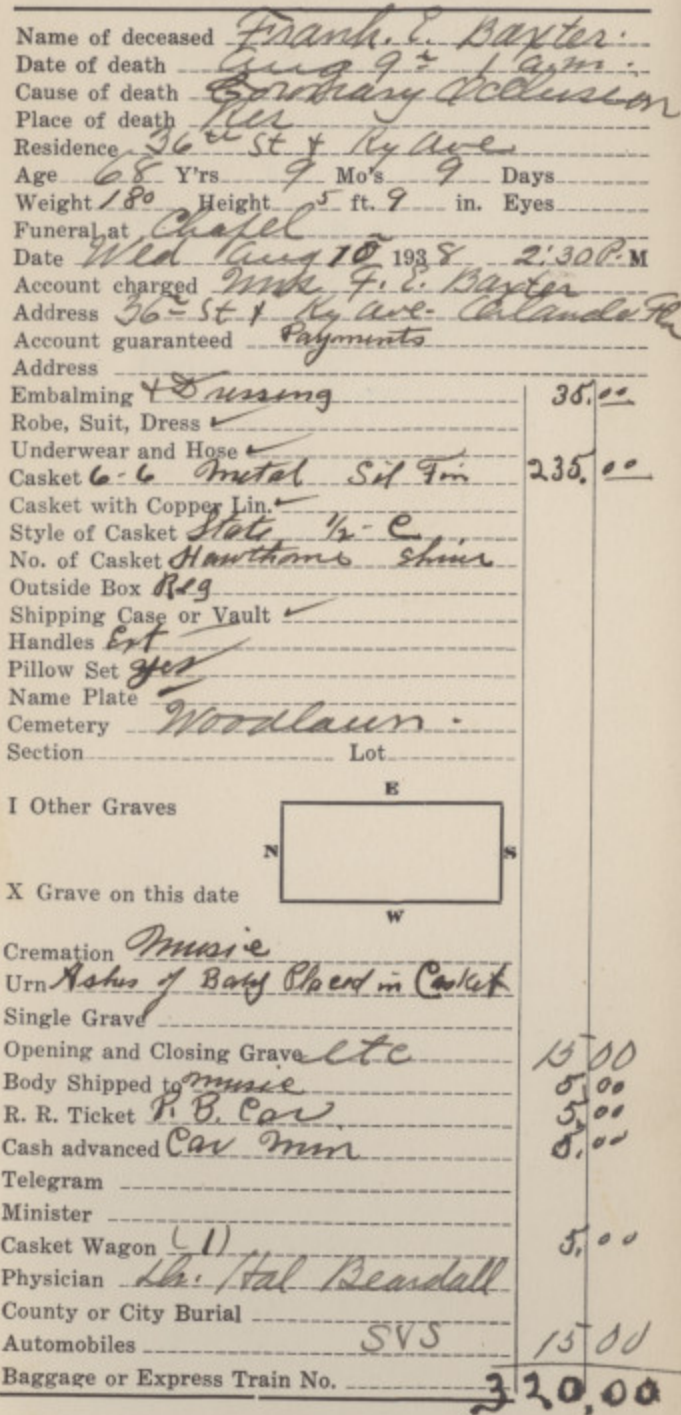 Name of deceased Frank. E. Baxter.
Date of death Aug 9th 1 a.m.
Cause of death Coronary Occlusion
Place of death Res
Residence 36th St & Ky Ave
Age 68 Y'rs 9 Mo's 9 Days
Weight 180 Height 5 ft. 9 in. Eyes
Funeral at Chapel
Date Wed Aug 10 1938 2:30 P.M
Account charged Mrs F. E. Baxter
Address 36th St & Ky Ave - Orlando Fla
Account guaranteed Payments
Address
Embalming & Dressing 35.00
Robe, Suit, Dress ✓
Underwear and Hose ✓
Casket 6-6 Metal Sil Fin 235.00
Casket with Copper Lin. ✓
Style of Casket State 1/2 - C
No. of Casket Hawthorne
Outside Box Reg
Shipping Case or Vault ✓
Handles Ext
Pillow Set yes
Name Plate ✓
Cemetery Woodlawn.
Section Lot
E
I Other Graves
N S
X Grave on this date
W
Cremation Music
Urn Ashes of Baby Placed in Casket
Single Grave
Opening and Closing Grave etc 15 00
Body Shipped to music 5.00
R. R. Ticket P. B. Car 5.00
Cash advanced Car Min 5.00
Telegram
Minister
Casket Wagon (1) 5.00
Physician Dr. Hal Beardall
County or City Burial
Automobiles SVS 15 00
Baggage or Express Train No. 320.00